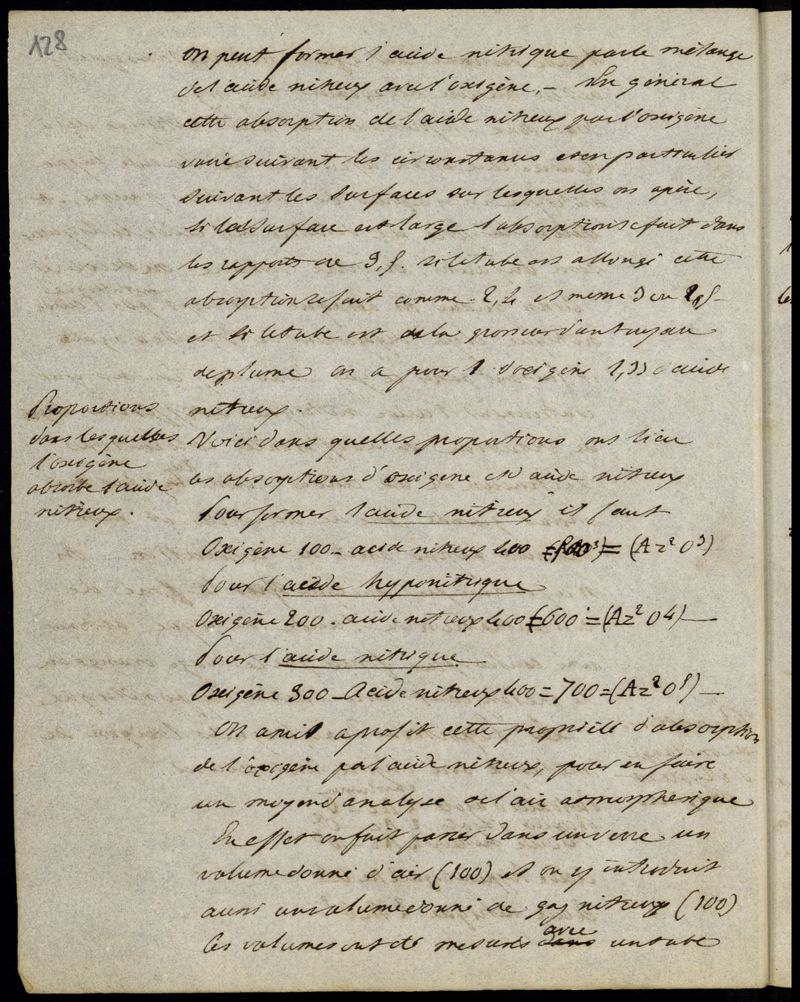 128
on peut former l'acide nitrique par le mélange
de l'acide nitreux avec l'oxigène. – En général
cette absorption de l'acide nitreux par l'oxigène
varie suivant les circonstances et en particulier
suivant les surfaces sur lesquelles on opère,
si la surface est large l'absorption se fait dans
les rapports de 3,5. si le tube est allongé cette
absorption se fait comme 2, et meme 3 ou
et si le tube est de la grosseur d'un tuyau
de plume on a pour 1 d'oxigène 1,33 d'acide
nitreux.
Proportions
dans lesquelles
l'oxigène
absorbe l'acide
nitreux.
Voici dans quelles proportions ont lieu
les absorptions d'oxigène et d'acide nitreux
Pour former l'acide nitreux il faut
Oxigène 100 – acide nitreux 400 = (Az² O³)
Pour l'acide hyponitrique
Oxigène 200 – acide nitreux 400 = 600 = (Az² O4) —
Pour l'acide nitrique
Oxigène 300 – Acide nitreux 400 = 700 = (Az² O⁵) —
On a mis a profit cette propriété d'absorption
de l'oxigène par l'acide nitreux, pour en faire
un moyen d'analyse de l'air atmospherique
En effet on fait passer dans un verre un
volume donné d'air (100) et on y introduit
aussi un volume donné de gaz nitreux (100)
Ces volumes ont été mesurés avec un tube